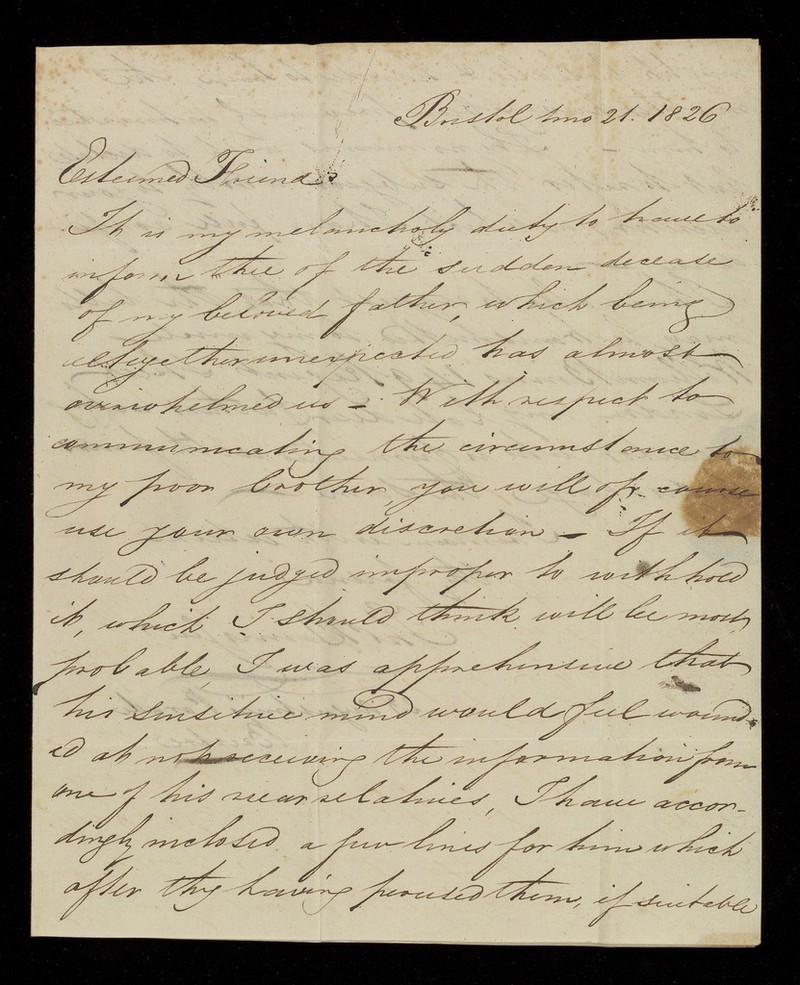 Bristol 1mo 21. 1826
Esteemed Friend
It is my melancholy duty to have to
inform thee of the sudden decease
of my beloved father, which being
altogether unexpected has almost
overwhelmed us - With respect to
communicating the circumstance to
my poor brother you will of course
use your own discretion - If it
should be judged improper to withhold
it, which I should think will be most
probable, I was apprehensive that
his sensitive mind would feel wound-
ed at not receiving the information from
one of his near relatives, I have accor-
dingly inclosed a few lines for him which
after thy having perused them, if suitable